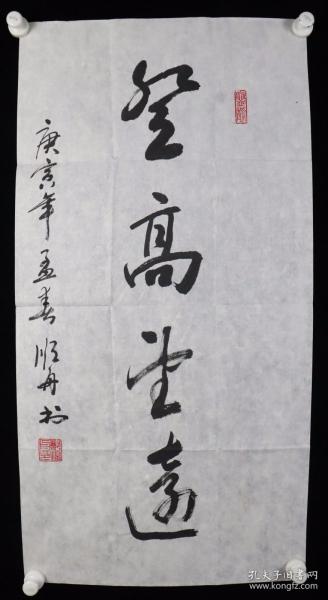 登高望遠
庚寅年孟春順舟书
孔夫子旧书网
www.kongfz.com